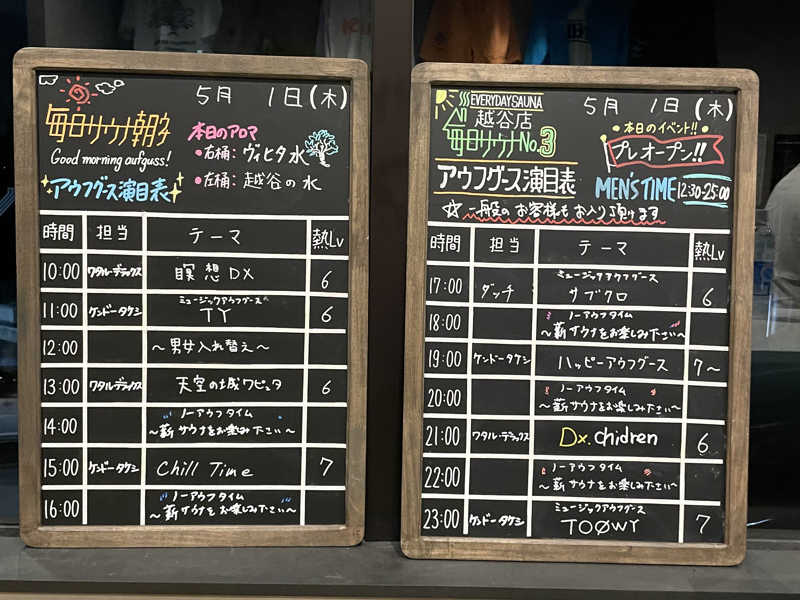 5月 1日(木)
毎日サウナ朝子
Good morning aufguss!
アウフグース演目表
本日のアロマ
・右桶: ヴィヒタ水
・左桶: 越谷の水
時間 担当 テーマ 熱Lv
10:00 ワタル・デラックス 瞑想DX 6
11:00 ケンドータケシ ミュージックアウフグース
TY 6
12:00 ～男女入れ替え～
13:00 ワタル・デラックス 天空の城ワピュタ 6
14:00 ノーアウフタイム
～薪サウナをお楽み下さい～
15:00 ケンドータケシ Chill Time 7
16:00 ノーアウフタイム
～薪サウナをお楽しみ下さい～
EVERYDAY SAUNA
越谷店
毎日サウナNo.3
アウフグース演目表
5月 1日(木)
本日のイベント!!
プレオープン!!
MEN'S TIME 12:30-25:00
☆一般のお客様もお入り頂けます
時間 担当 テーマ 熱Lv
17:00 ダッチ ミュージックアウフグース
サブクロ 6
18:00 ノーアウフタイム
～薪サウナをお楽しみ下さい～
19:00 ケンドータケシ ハッピーアウフグース 7～
20:00 ノーアウフタイム
～薪サウナをお楽しみ下さい～
21:00 ワタル・デラックス Dx.chidren 6
22:00 ノーアウフタイム
～薪サウナをお楽しみ下さい～
23:00 ケンドータケシ ミュージックアウフグース
TOØWY 7